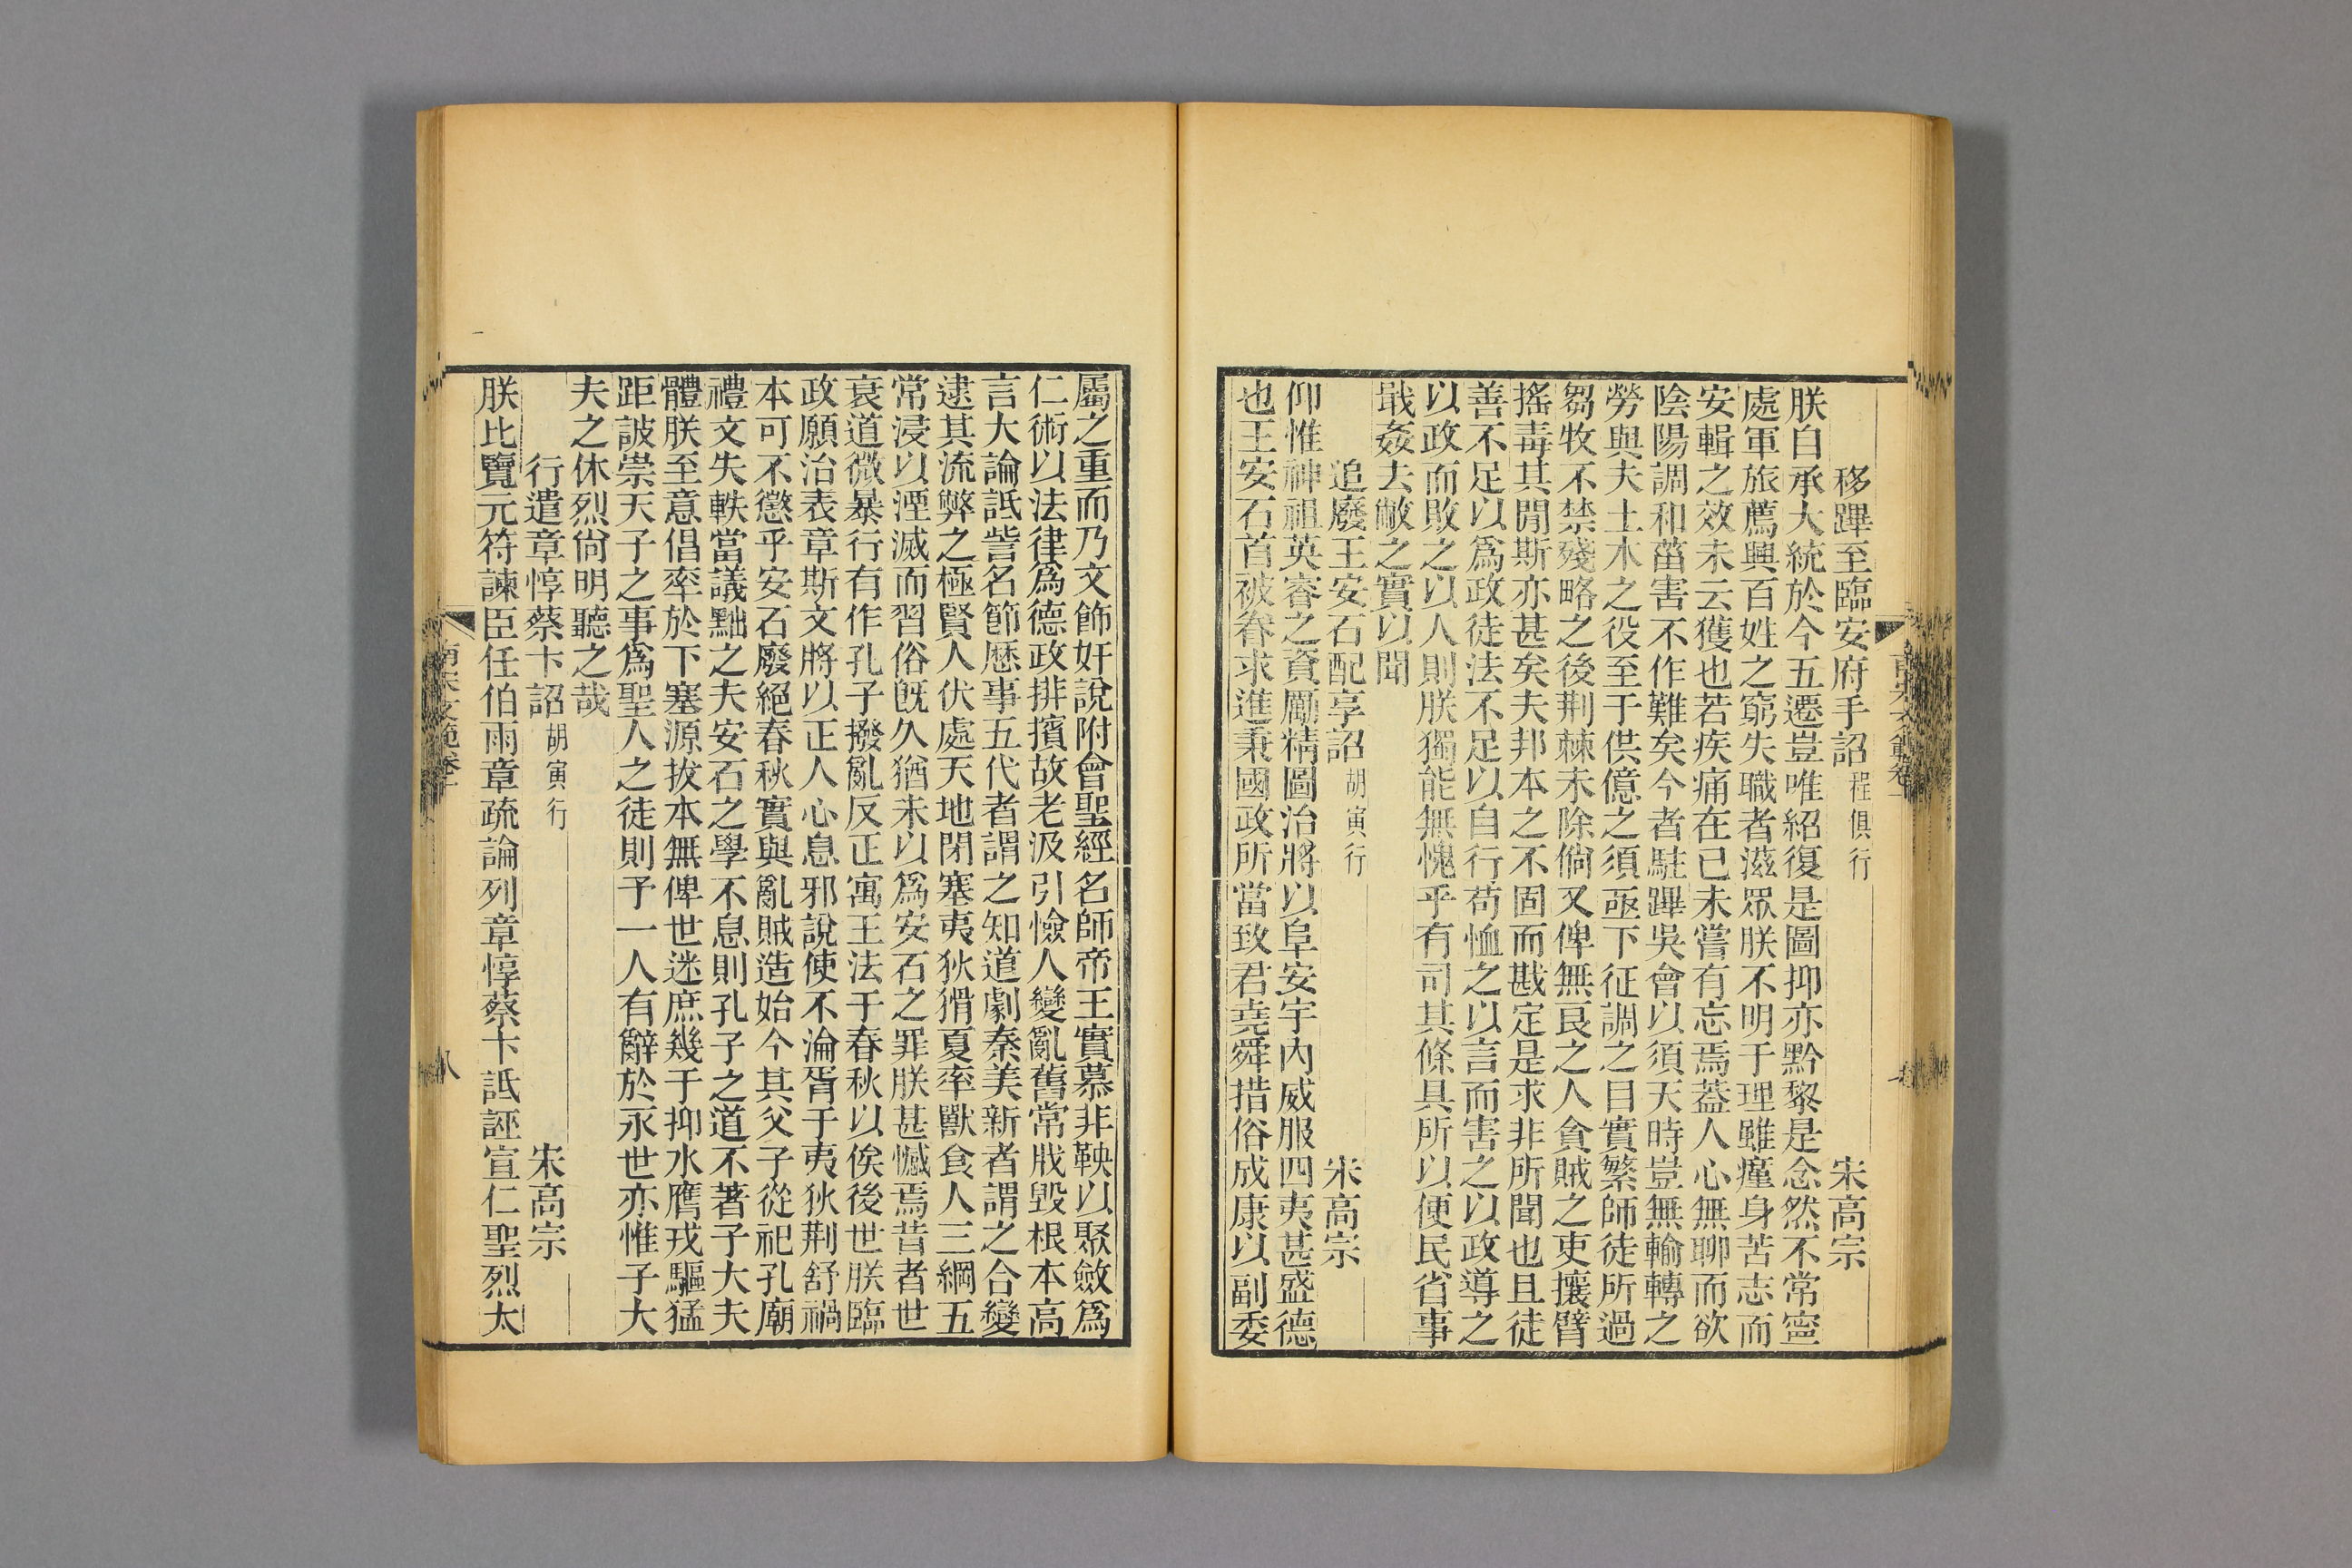 移蹕至臨安府手詔 程俱行 宋高宗
朕自承大統於今五遷豈唯紹復是圖抑亦黔黎是念然不常寧
處軍旅薦興百姓之窮失職者滋眾朕不明于理雖癯身苦志而
安輯之效未云獲也若疾痛在已未嘗有忘焉蓋人心無聊而欲
陰陽調和菑害不作難矣今者駐蹕吳會以須天時豈無輸轉之
勞與夫土木之役至于供億之須亟下征調之目實繁師徒所過
芻牧不禁殘略之後荆棘未除倘又俾無良之人貪賊之吏攘臂
搖毒其閒斯亦甚矣夫邦本之不固而戡定是求非所聞也且徒
善不足以爲政徒法不足以自行苟恤之以言而害之以政導之
以政而敗之以人則朕獨能無愧乎有司其條具所以便民省事
戢姦去敝之實以聞
追廢王安石配享詔 胡寅行 宋高宗
仰惟神祖英睿之資勵精圖治將以阜安宇內威服四夷甚盛德
也王安石首被眷求進秉國政所當致君堯舜措俗成康以副委
屬之重而乃文飾奸說附會聖經名師帝王實慕非鞅以聚斂爲
仁術以法律爲德政排擯故老汲引憸人變亂舊常戕毀根本高
言大論詆訾名節厯事五代者謂之知道劇秦美新者謂之合變
逮其流弊之極賢人伏處天地閉塞夷狄猾夏率獸食人三綱五
常浸以湮滅而習俗旣久猶未以爲安石之罪朕甚憾焉昔者世
衰道微暴行有作孔子撥亂反正寓王法于春秋以俟後世朕臨
政願治表章斯文將以正人心息邪說使不淪胥于夷狄荆舒禍
本可不懲乎安石廢絕春秋實與亂賊造始今其父子從祀孔廟
禮文失軼當議黜之夫安石之學不息則孔子之道不著子大夫
體朕至意倡率於下塞源拔本無俾世迷庶幾于抑水膺戎驅猛
距詖崇天子之事爲聖人之徒則予一人有辭於永世亦惟子大
夫之休烈尙明聽之哉
行遣章惇蔡卞詔 胡寅行 宋高宗
朕比覽元符諫臣任伯雨章疏論列章惇蔡卞詆誣宣仁聖烈太
八